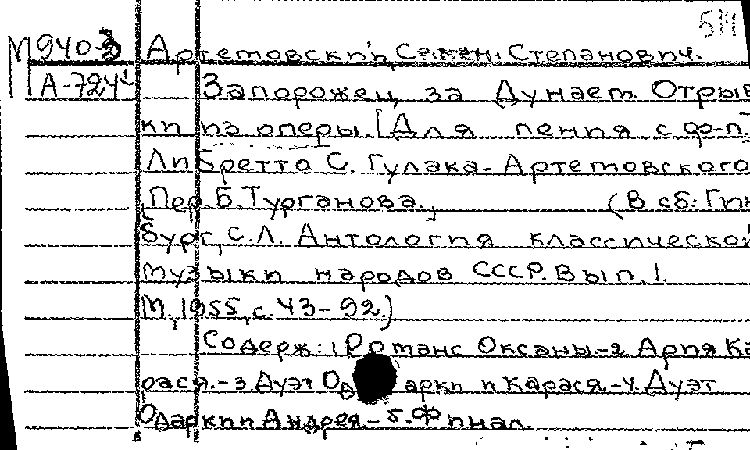 511
М940-3 Артемовский, Семен Степанович.
А-724 Запорожец за Дунаем. Отрыв
ки из оперы. [Для пения с ф-п.
Либретто С. Гулака-Артемовского
Пер. Б. Турганова. (В сб: Гин
бург, С.Л. Антология классической
музыки народов СССР. Вып. 1.
М., 1955, с. 43-92.)
Содерж: 1 Романс Оксаны.-2. Ария Ка
рася.-3 Дуэт Одарки и Карася.-4. Дуэт
Одарки и Андрея.-5. Финал.